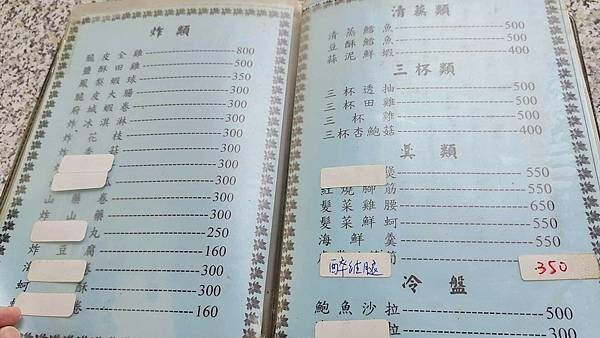 炸類
脆皮全雞 800
鹽酥田雞 500
鳳梨蝦球 350
脆皮大腸 300
府城蝦卷 300
炸冰淇淋 300
炸花枝 300
菇 300
300
山藥卷 300
山藥 300
丸 250
炸豆腐 160
卷 300
蚵酥 300
卷 160
清蒸類
清蒸鱈魚 500
豆酥鱈魚 500
蒜泥鮮蝦 400
三杯類
三杯透抽 500
三杯田雞 500
三杯雞 500
三杯杏鮑菇 400
羹類
煲 550
紅燒腳筋 550
髮菜雞腰 650
髮菜鮮蚵 550
海鮮羹 550
350
冷盤
鮑魚沙拉 500
拉 400